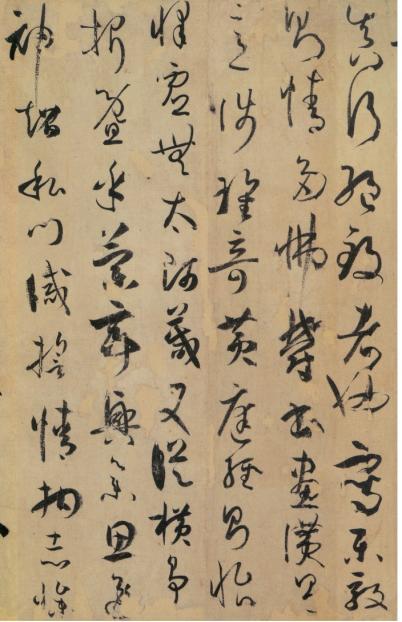 真行絕致者也寫樂毅
則情多怫鬱書畫讚則
意涉瑰奇黃庭經則怡
懌虛無太師箴又從橫爭
折暨乎蘭亭興集思逸
神超私門誡誓情拘志慘